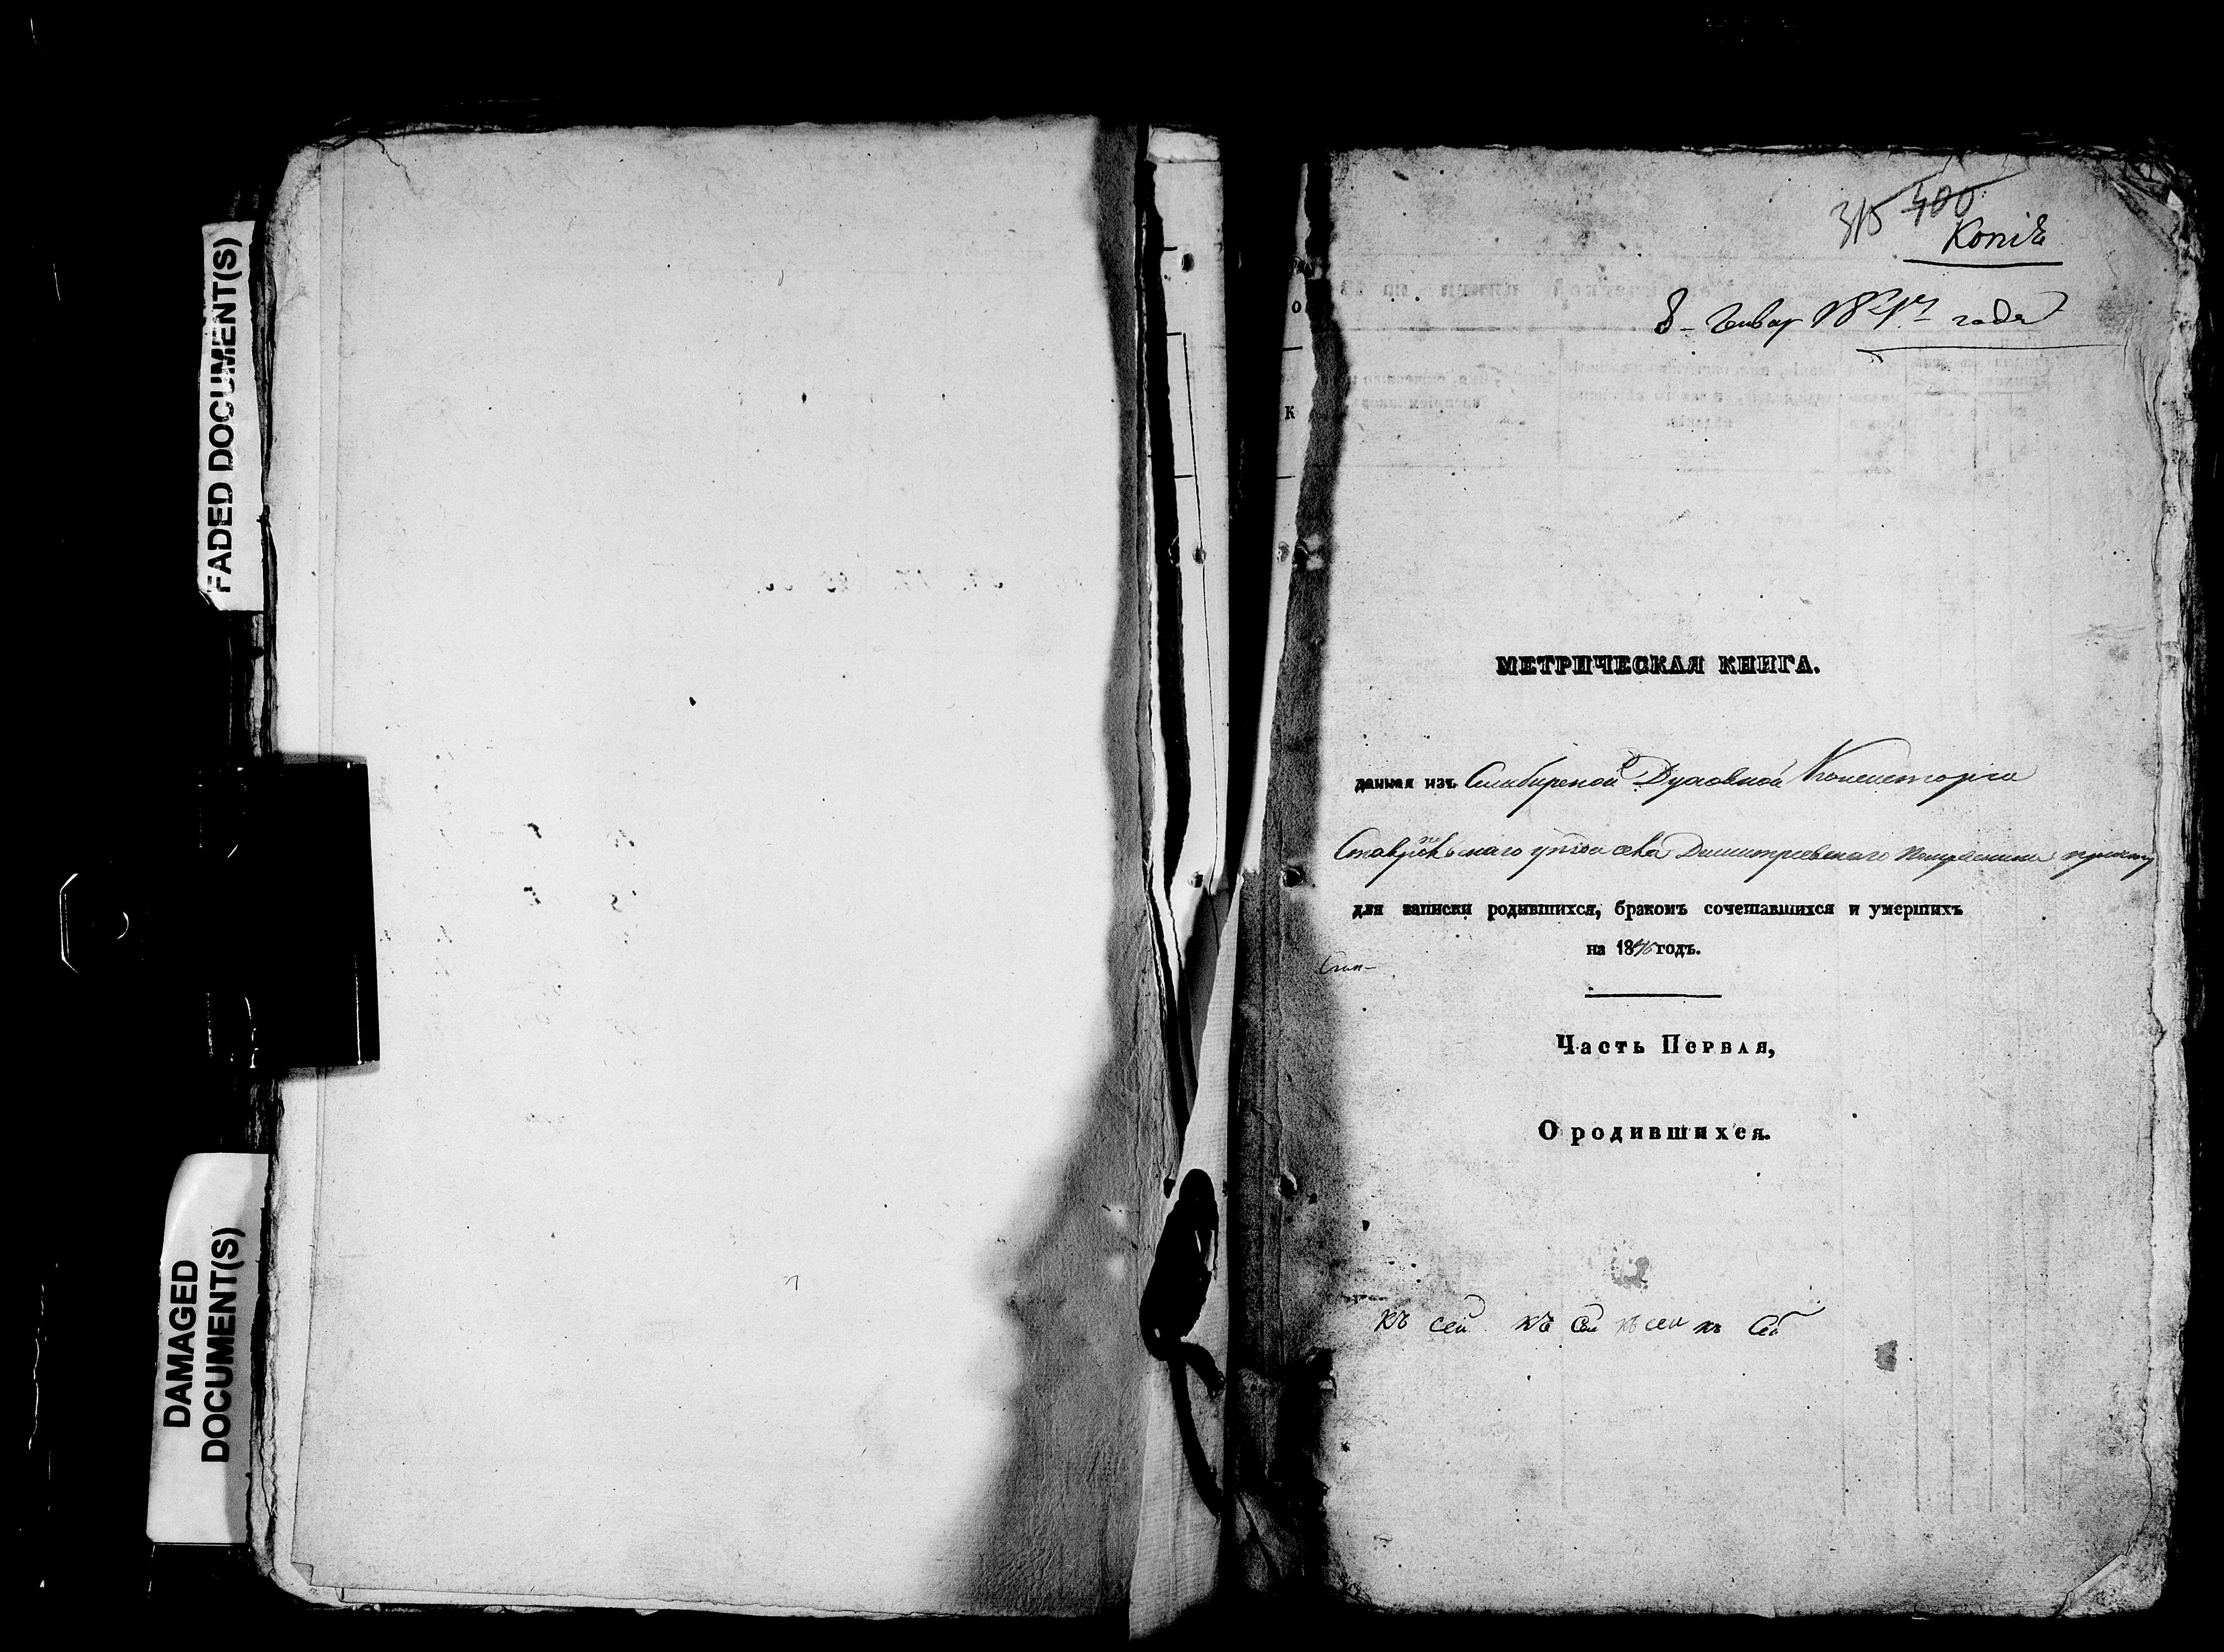 FADED DOCUMENT(S)
DAMAGED
DOCUMENT(S)
315 400
Копія
8 Генвар 1847 года
МЕТРИЧЕСКАЯ КНИГА.
данная изъ Симбирской Духовной Консисторіи
Ставропольскаго уезда села Димитріевскаго причту
для записки родившихся, бракомъ сочетавшихся и умершихъ
на 1846 годъ.
Часть Первая,
О родившихся.
къ сей къ сей къ сей къ сей